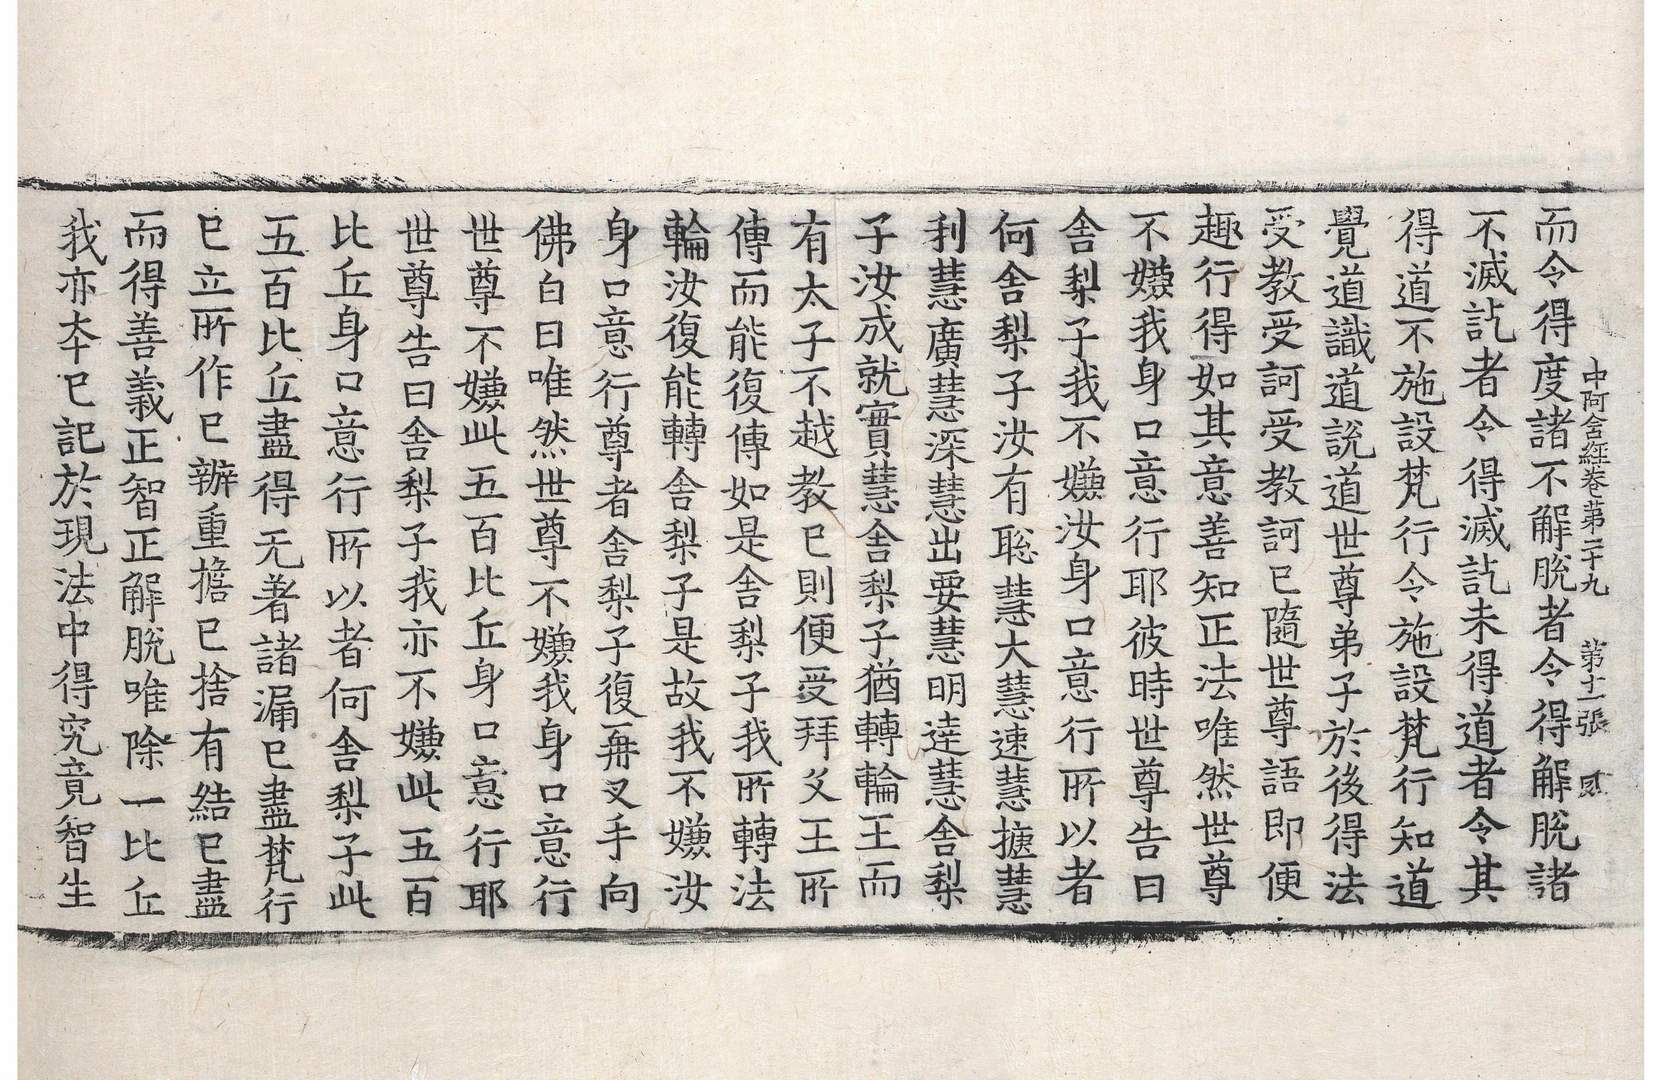 中阿含經卷第二十九 第十一張
而令得度諸不解脫者令得解脫諸
不滅訖者令得滅訖未得道者令其
得道不施設梵行令施設梵行知道
覺道識道說道世尊弟子於後得法
受教受訶受教訶已隨世尊語即便
趣行得如其意善知正法唯然世尊
不嫌我身口意行耶彼時世尊告曰
舍梨子我不嫌汝身口意行所以者
何舍梨子汝有聡慧大慧速慧揵慧
利慧廣慧深慧出要慧明達慧舍梨
子汝成就實慧舍梨子猶轉輪王而
有太子不越教已則便受拜父王所
傳而能復傳如是舍梨子我所轉法
輪汝復能轉舍梨子是故我不嫌汝
身口意行尊者舍梨子復再叉手向
佛白曰唯然世尊不嫌我身口意行
世尊不嫌此五百比丘身口意行耶
世尊告曰舍梨子我亦不嫌此五百
比丘身口意行所以者何舍梨子此
五百比丘盡得无著諸漏已盡梵行
已立所作已辦重擔已捨有結已盡
而得善義正智正解脫唯除一比丘
我亦本已記於現法中得究竟智生